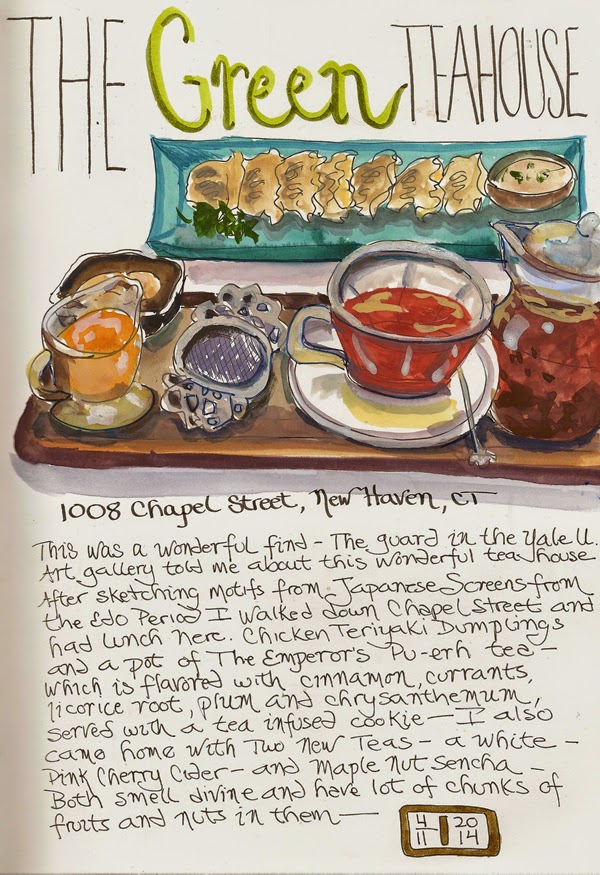 THE Green TEAHOUSE
1008 Chapel Street, New Haven, CT
This was a wonderful find - The guard in the Yale U.
Art gallery told me about this wonderful tea house
After sketching motifs from Japanese Screens from
the Edo Period I walked down Chapel Street and
had lunch here. Chicken Teriyaki Dumplings
and a pot of The Emperor's Pu-erh tea -
which is flavored with cinnamon, currants,
licorice root, plum and chrysanthemum,
served with a tea infused cookie — I also
came home with Two New Teas - a white -
Pink Cherry Cider - and Maple Nut Sencha -
Both smell divine and have lot of chunks of
fruits and nuts in them —
4 20
11 14